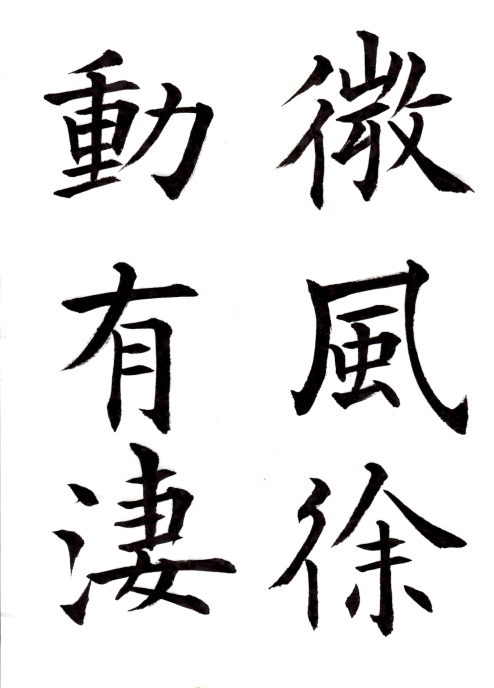 微風徐
動有淒